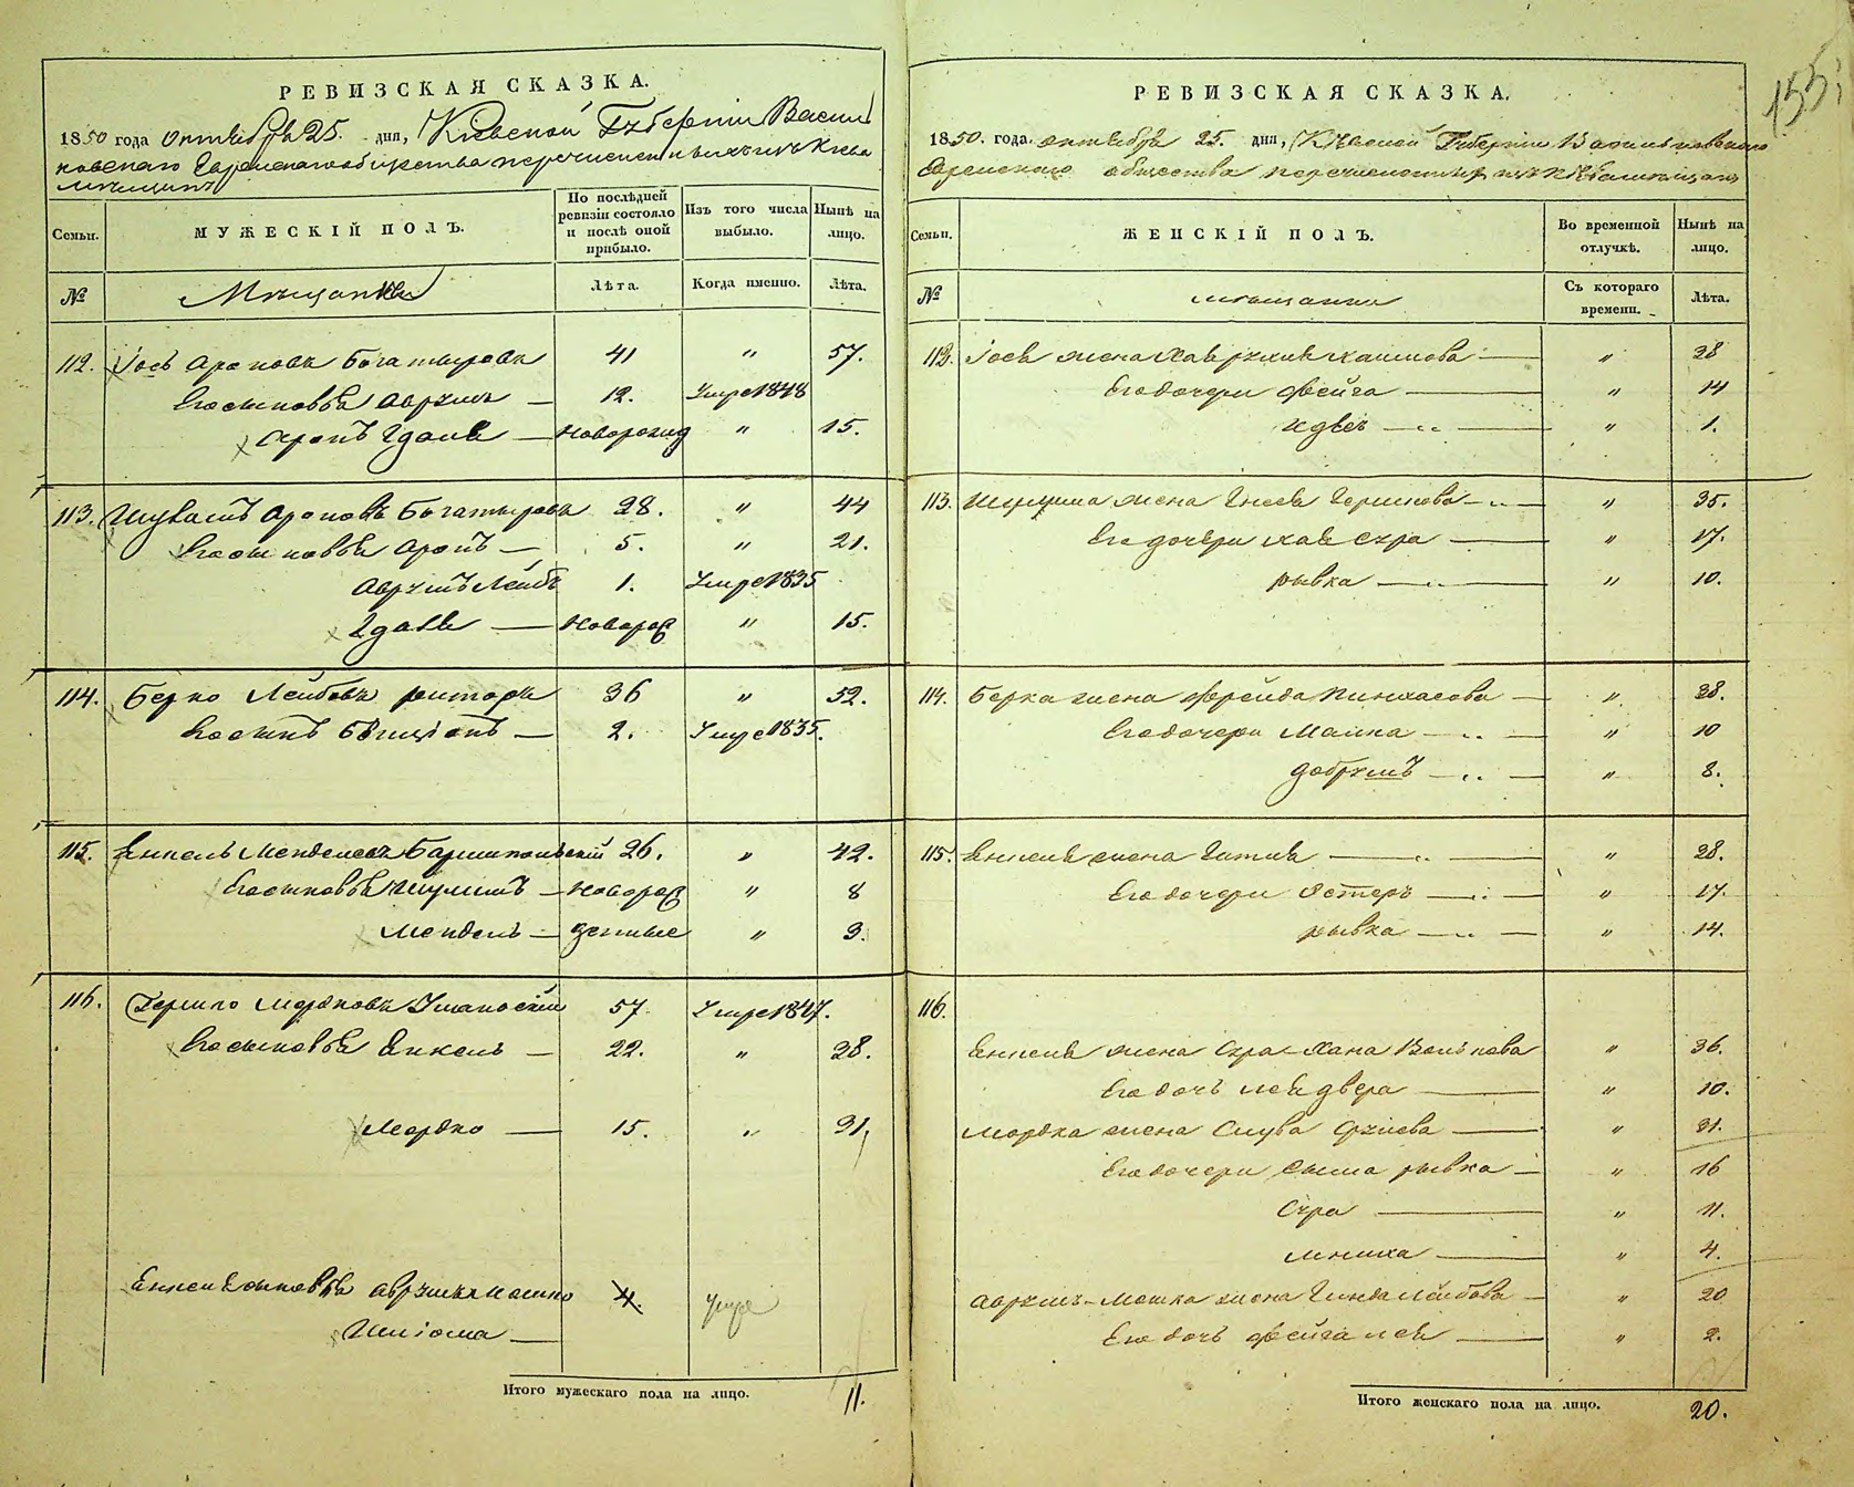 155
РЕВИЗСКАЯ СКАЗКА.
1850 года октября 25. дня, Кіевской Губерніи Василь
ковскаго Еврейскаго общества перечисленныхъ изъ Кіева
мещанъ
Семьи. МУЖЕСКІЙ ПОЛЪ. По послѣдней ревизіи состояло и послѣ оной прибыло. Изъ того числа выбыло. Нынѣ на лицо.
№ Мещанъ Лѣта. Когда именно. Лѣта.
112. Іось Ароновъ Богатыровъ 41 " 57.
Его сыновья Аврумъ — 12. Умре 1848
Аронъ Гдаля — новорожд " 15.
113. Ароновъ Богатыровъ 28. " 44
Его сыновья Аронъ — 5. " 21.
Аврумъ Лейбъ 1. Умре 1835
Гдаля — новорож " 15.
114. Берко Лейбовъ 36 " 52.
Его сынъ — 2. Умре 1835.
115. Янкель Менделевъ 26. " 42.
Его сыновья — новорож " 8
Мендель — денные " 3.
116. Гершко Мордковъ Уманскій 57. Умре 1847.
Его сыновья Янкель — 22. " 38.
Мордко — 15. " 31,
Янкеля сыновья Аврумъ Мошко 4. умре
—
Итого мужескаго пола на лицо. 11.
РЕВИЗСКАЯ СКАЗКА.
1850. года. октября 25. дня, Кіевской Губерніи Васильковскаго
Еврейскаго общества перечисленныхъ изъ
Семьи. ЖЕНСКІЙ ПОЛЪ. Во временной отлучкѣ. Нынѣ на лицо.
№ мещанки Съ котораго времени. Лѣта.
112. Іося жена Хаимова — " 38
Его дочери Фейга — " 14
— " — " 1.
113. жена Гершкова — " — " 35.
Его дочери Хая Сура — " 17.
Рывка — " — " 10.
114. Берка жена Фрейда Пинхасова — " 38.
Его дочери Малка — " — " 10
Добрушъ — " — " 8.
115. Янкеля жена Гитля — " — " 38.
Его дочери Эстеръ — " — " 17.
Рывка — " — " 14.
116.
Янкеля жена Сура-Хана Волькова " 36.
Его дочь Лея Двера — " 10.
Мордка жена — " 31.
Его дочери Рывка — " 16
Сура — " 11.
— " 4.
Аврумъ-Мошка жена Гинда Лейбова — " 20
Его дочь Фейга Лея — " 2.
Итого женскаго пола на лицо. 20.